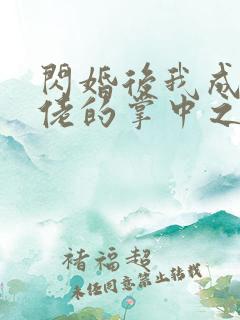 閃婚後我成
佬的掌中之
褚福超
未经同意禁止转载